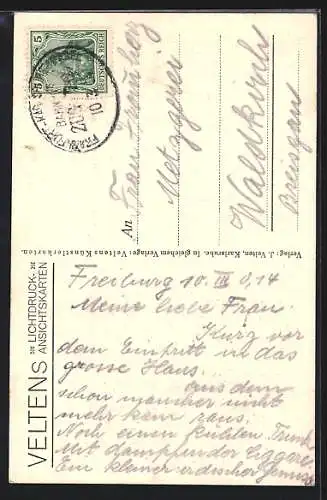 DEUTSCHES REICH
5
BAHNPOST
ZUG
10 3
VELTENS LICHTDRUCK-
ANSICHTSKARTEN
An Frau
Metzgerei
Waldkirch
Breisgau
Verlag: J. Velten, Karlsruhe. In gleichem Verlage Veltens Künstlerkarten.
Freiburg 10. III 914
Meine liebe Frau.
Kurz vor
dem Eintritt in das
grosse Haus.
aus dem
schon mancher nicht
mehr kam raus.
Noch einen kühlen Trunk
Mit dampfender Ziggare
Ein kleiner irdischer